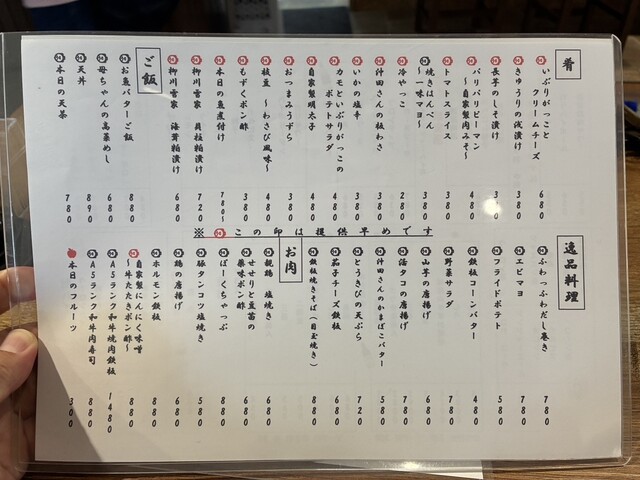 肴
いぶりがっこと
クリームチーズ 680
きゅうりの浅漬け 380
長芋のしそ漬け
バリバリピーマン
～自家製肉みそ～ 480
トマトスライス 380
焼きはんぺん
～一味マヨ～ 380
冷やっこ 280
仲田さんの板わさ 380
いかの塩辛 380
カモといぶりがっこの
ポテトサラダ 480
自家製明太子 480
おつまみうずら 380
枝豆 ～わさび風味～ 480
もずくポン酢 380
本日の魚煮付け 780～
柳川雪家 貝柱粕漬け 720
柳川雪家 海茸粕漬け 680
ご飯
お魚バターご飯 880
母ちゃんの高菜めし 680
天丼 890
本日の天茶 780
※ この印は提供早めです
逸品料理
ふわっふわだし巻き 780
エビマヨ 780
フライドポテト 580
鉄板コーンバター 480
野菜サラダ 780
山芋の唐揚げ 680
活タコの唐揚げ 780
仲田さんのかまぼこバター 580
とうきびの天ぷら 720
茄子チーズ鉄板 680
鉄板焼きそば（目玉焼き） 880
お肉
親鶏 塩焼き 680
せせりと豆苗の
薬味ポン酢 680
ぽーくちゃっぷ 880
豚タンコツ塩焼き 580
鶏の唐揚げ 680
ホルモン鉄板 880
自家製にんにく味噌
～牛たたきポン酢～ 880
A5ランク和牛焼肉鉄板 1480
A5ランク和牛肉寿司 880
本日のフルーツ 300